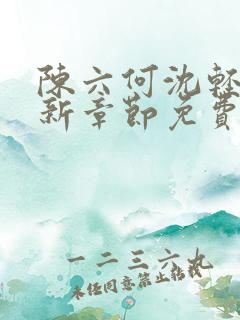 陳六何沈輕
新章節免費
一二三六九
未经同意禁止转载